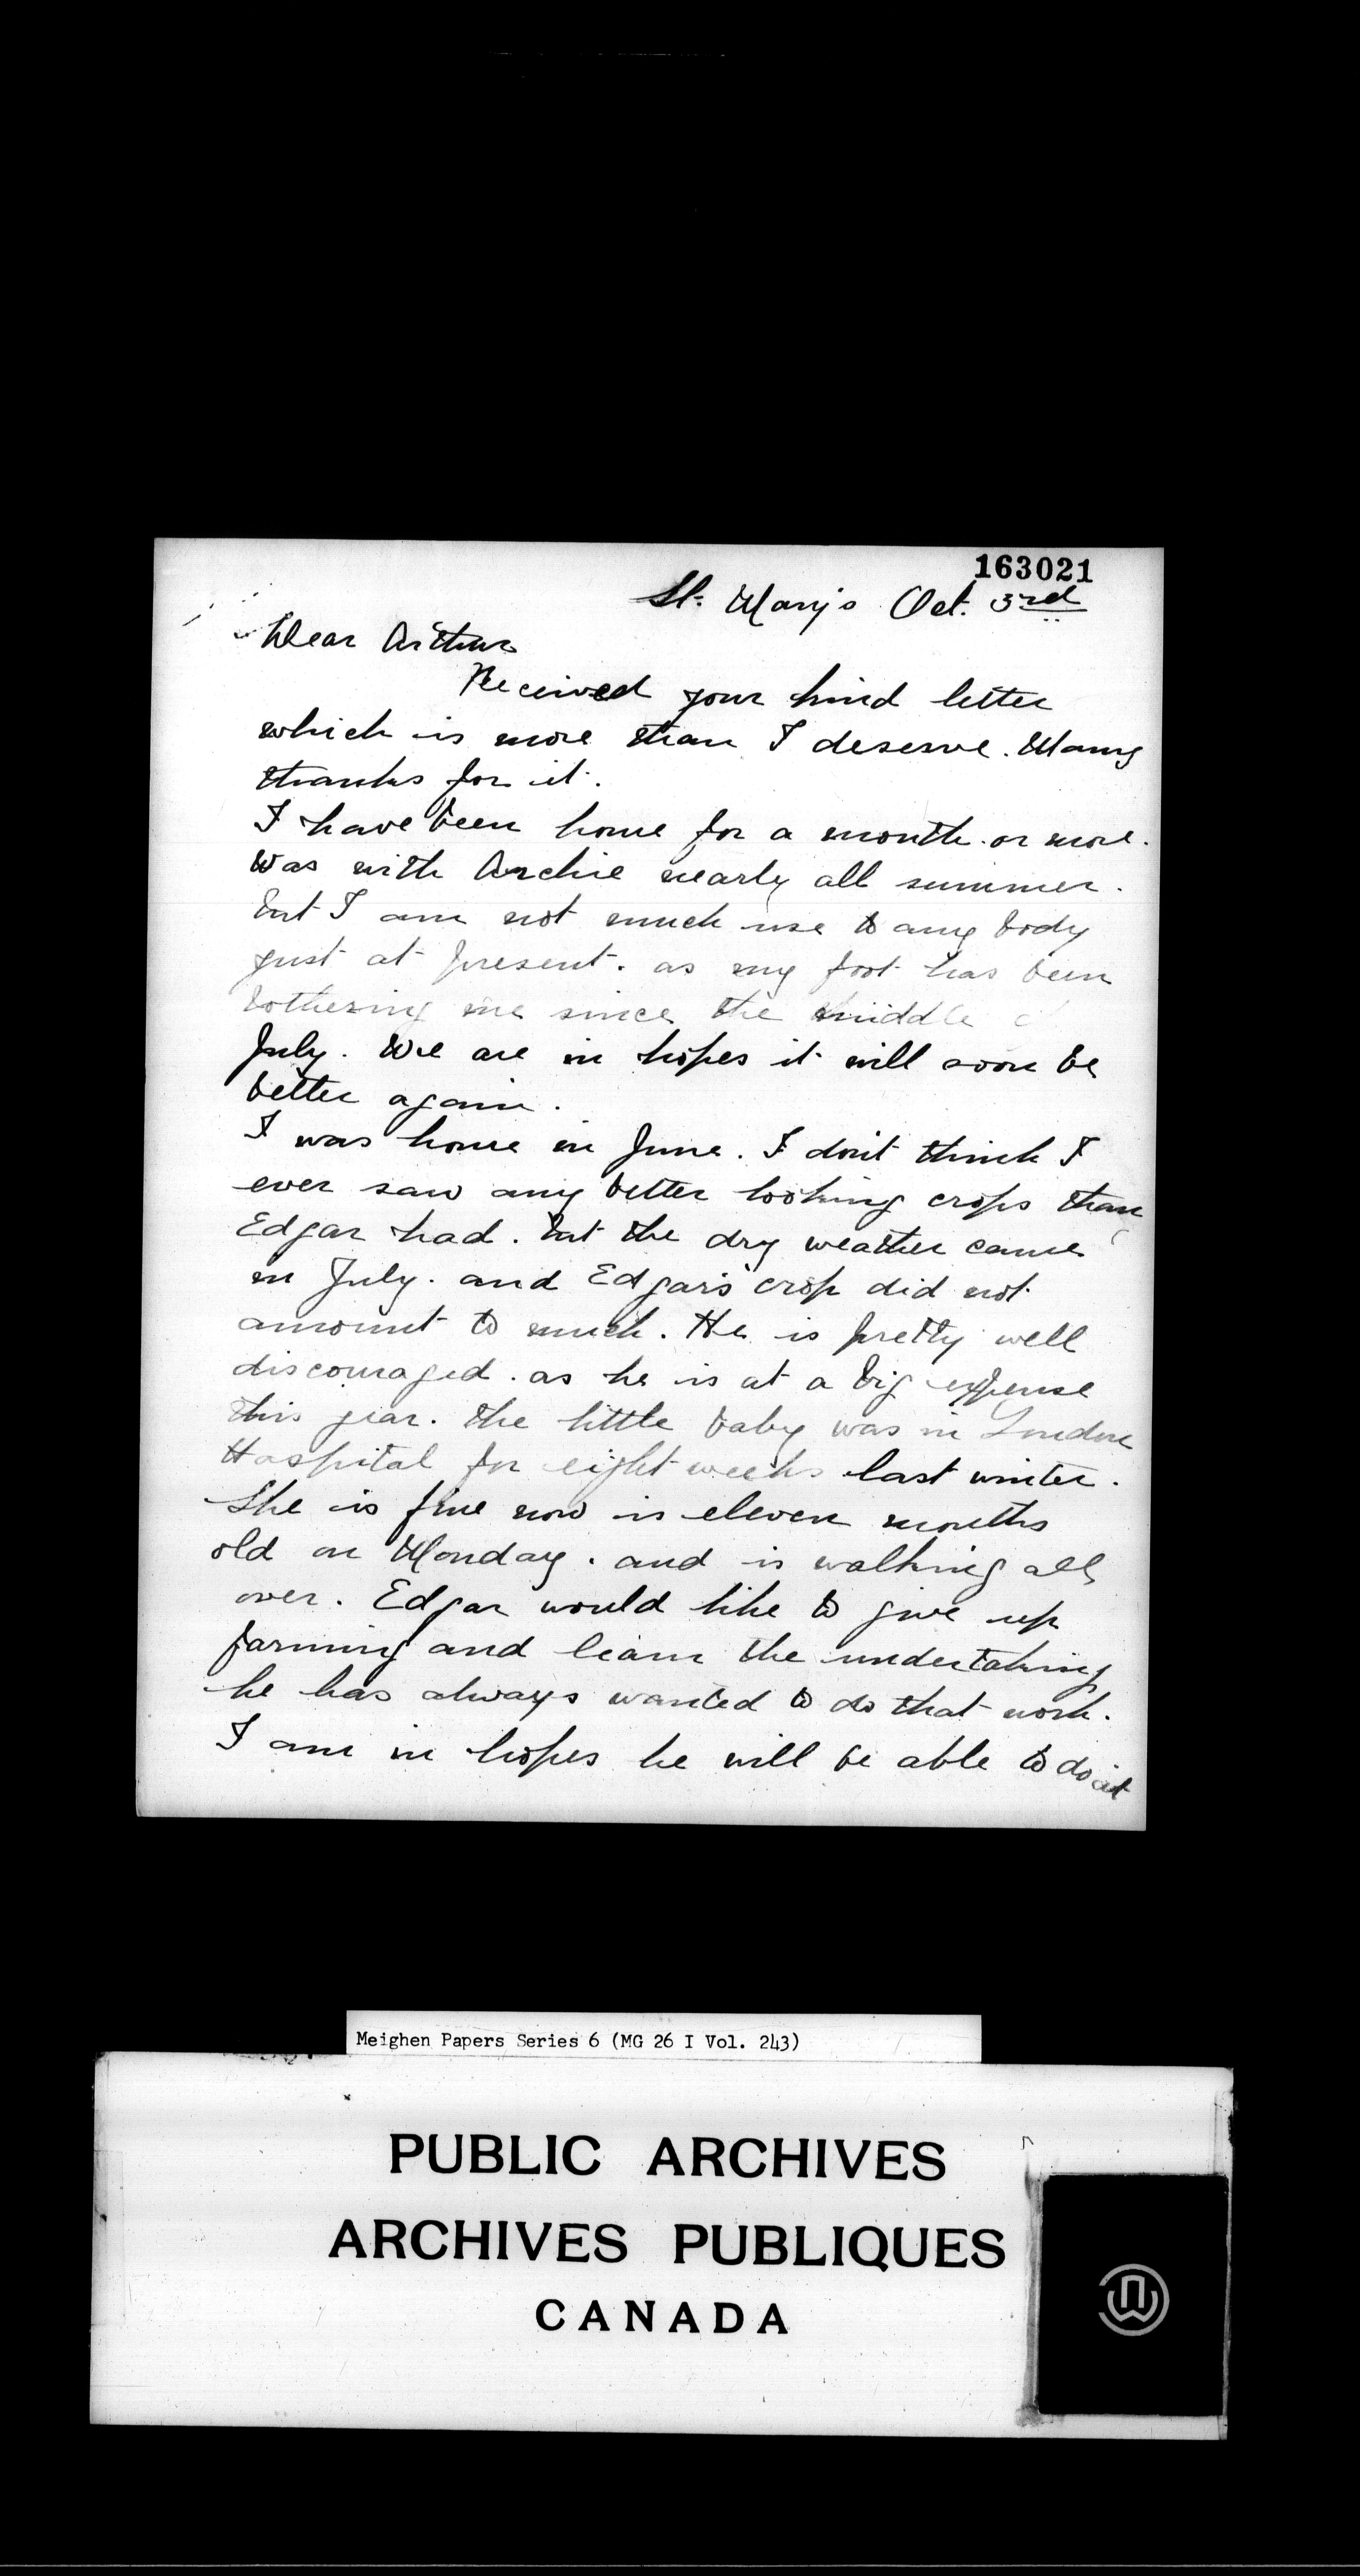 163021
St. Mary's Oct. 3rd
Dear Arthur
Received your kind letter
which is more than I deserve. Many
thanks for it.
I have been home for a month or more.
Was with Archie nearly all summer.
but I am not much use to any body
just at present. as my foot has been
bothering me since the middle of
July. We are in hopes it will soon be
better again.
I was home in June. I don't think I
ever saw any better looking crops than
Edgar had. but the dry weather came
in July. and Edgar's crop did not
amount to much. He is pretty well
discouraged. as he is at a big expense
this year. the little baby was in London
Hospital for eight weeks last winter.
She is fine now is eleven months
old on Monday. and is walking all
over. Edgar would like to give up
farming and learn the undertaking
he has always wanted to do that work.
I am in hopes he will be able to do it
Meighen Papers Series 6 (MG 26 I Vol. 243)
PUBLIC ARCHIVES
ARCHIVES PUBLIQUES
CANADA